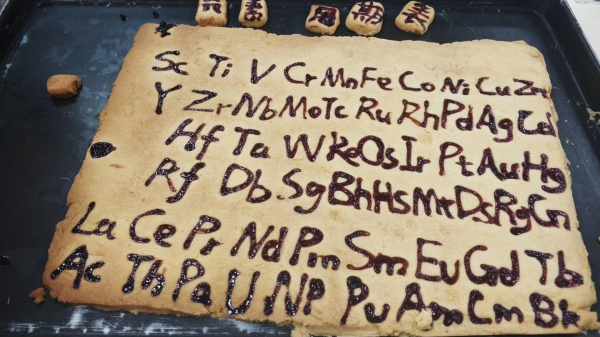 Sc Ti V Cr Mn Fe Co Ni Cu Zn
Y Zr Nb Mo Tc Ru Rh Pd Ag Cd
Hf Ta W Re Os Ir Pt Au Hg
Rf Db Sg Bh Hs Mt Ds Rg Cn
La Ce Pr Nd Pm Sm Eu Gd Tb
Ac Th Pa U Np Pu Am Cm Bk